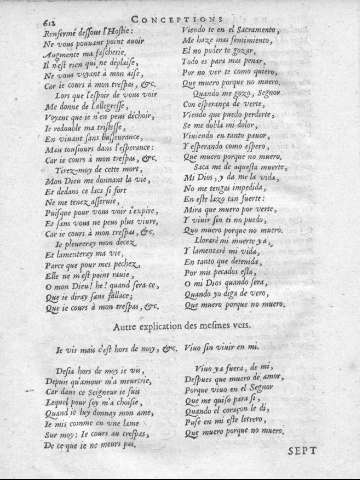 612 CONCEPTIONS
Renfermé dessous l'Hostie:
Ne vous pouuant point auoir
Augmente ma fascherie,
Il n'est rien qui ne déplaise,
Ne vous voyant à mon aise,
Car ie cours à mon trespas, &c.
Lors que l'espoir de vous voir
Me donne de l'allegresse,
Voyant que ie n'en peus déchoir,
Ie redouble ma tristesse,
En viuant sans
Mais tousiours dans l'esperance:
Car ie cours à mon trespas, &c.
Tirez-moy de cette mort,
Mon Dieu me donnant la vie,
Et dedans ce lacs si fort
Ne me tenez asseruie,
Puisque pour vous voir i'expire,
Et sans vous ne peus plus viure,
Car ie cours à mon trespas, &c.
Ie pleureray mon decez,
Et lamenteray ma vie,
Parce que pour mes pechez
Elle ne m'est point rauie,
O mon Dieu! he! quand sera-ce,
Que ie diray sans fallace;
Que ie cours à mon trespas, &c.
Viendo te en el Sacramento,
Me haze mas sentimiento,
El no poder te gozar,
Todo es para mas penar,
Por no ver te como quiero,
Que muero porque no muero.
Quando me gozo, Segnor
Con esperança de verte,
Viendo que puedo perderte,
Se me dobla mi dolor,
Viuiendo en tanto pauor,
Y esperando como espero,
Que muero porque no muero.
Saca me de aquesta muerte
Mi Dios, y da me la vida,
No me tengas impedida,
En este lazo tan fuerte:
Mira que muero por verte,
Y viuir sin ti no puedo,
Que muero porque no muero.
Lloraré mi muerte ya,
Y lamentaré mi vida,
En tanto que detenida,
Por mis pecados esta,
O mi Dios quando sera,
Quando yo diga de vero,
Que muero porque no muero.
Autre explication des mesmes vers.
Ie vis mais c'est hors de moy, &c. Viuo sin viuir en mi.
Desia hors de moy ie vis,
Depuis qu'amour m'a meurtrie,
Car dans ce Seigneur ie suis
Lequel pour soy m'a choisie,
Quand ie luy donnay mon ame,
Ie mis comme en vne lame
Sur moy: Ie cours au trespas,
De ce que ie ne meurs pas.
Viuo ya fuera, de mi,
Despues que muero de amor,
Porque viuo en el Segnor
Que me quiso para si,
Quando el coraçon le di,
Puse en mi este letrero,
Que muero porque no muero.
SEPT